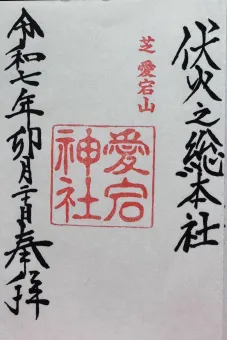 伏火之総本社
芝愛宕山
愛宕神社
令和七年卯月二日奉拝